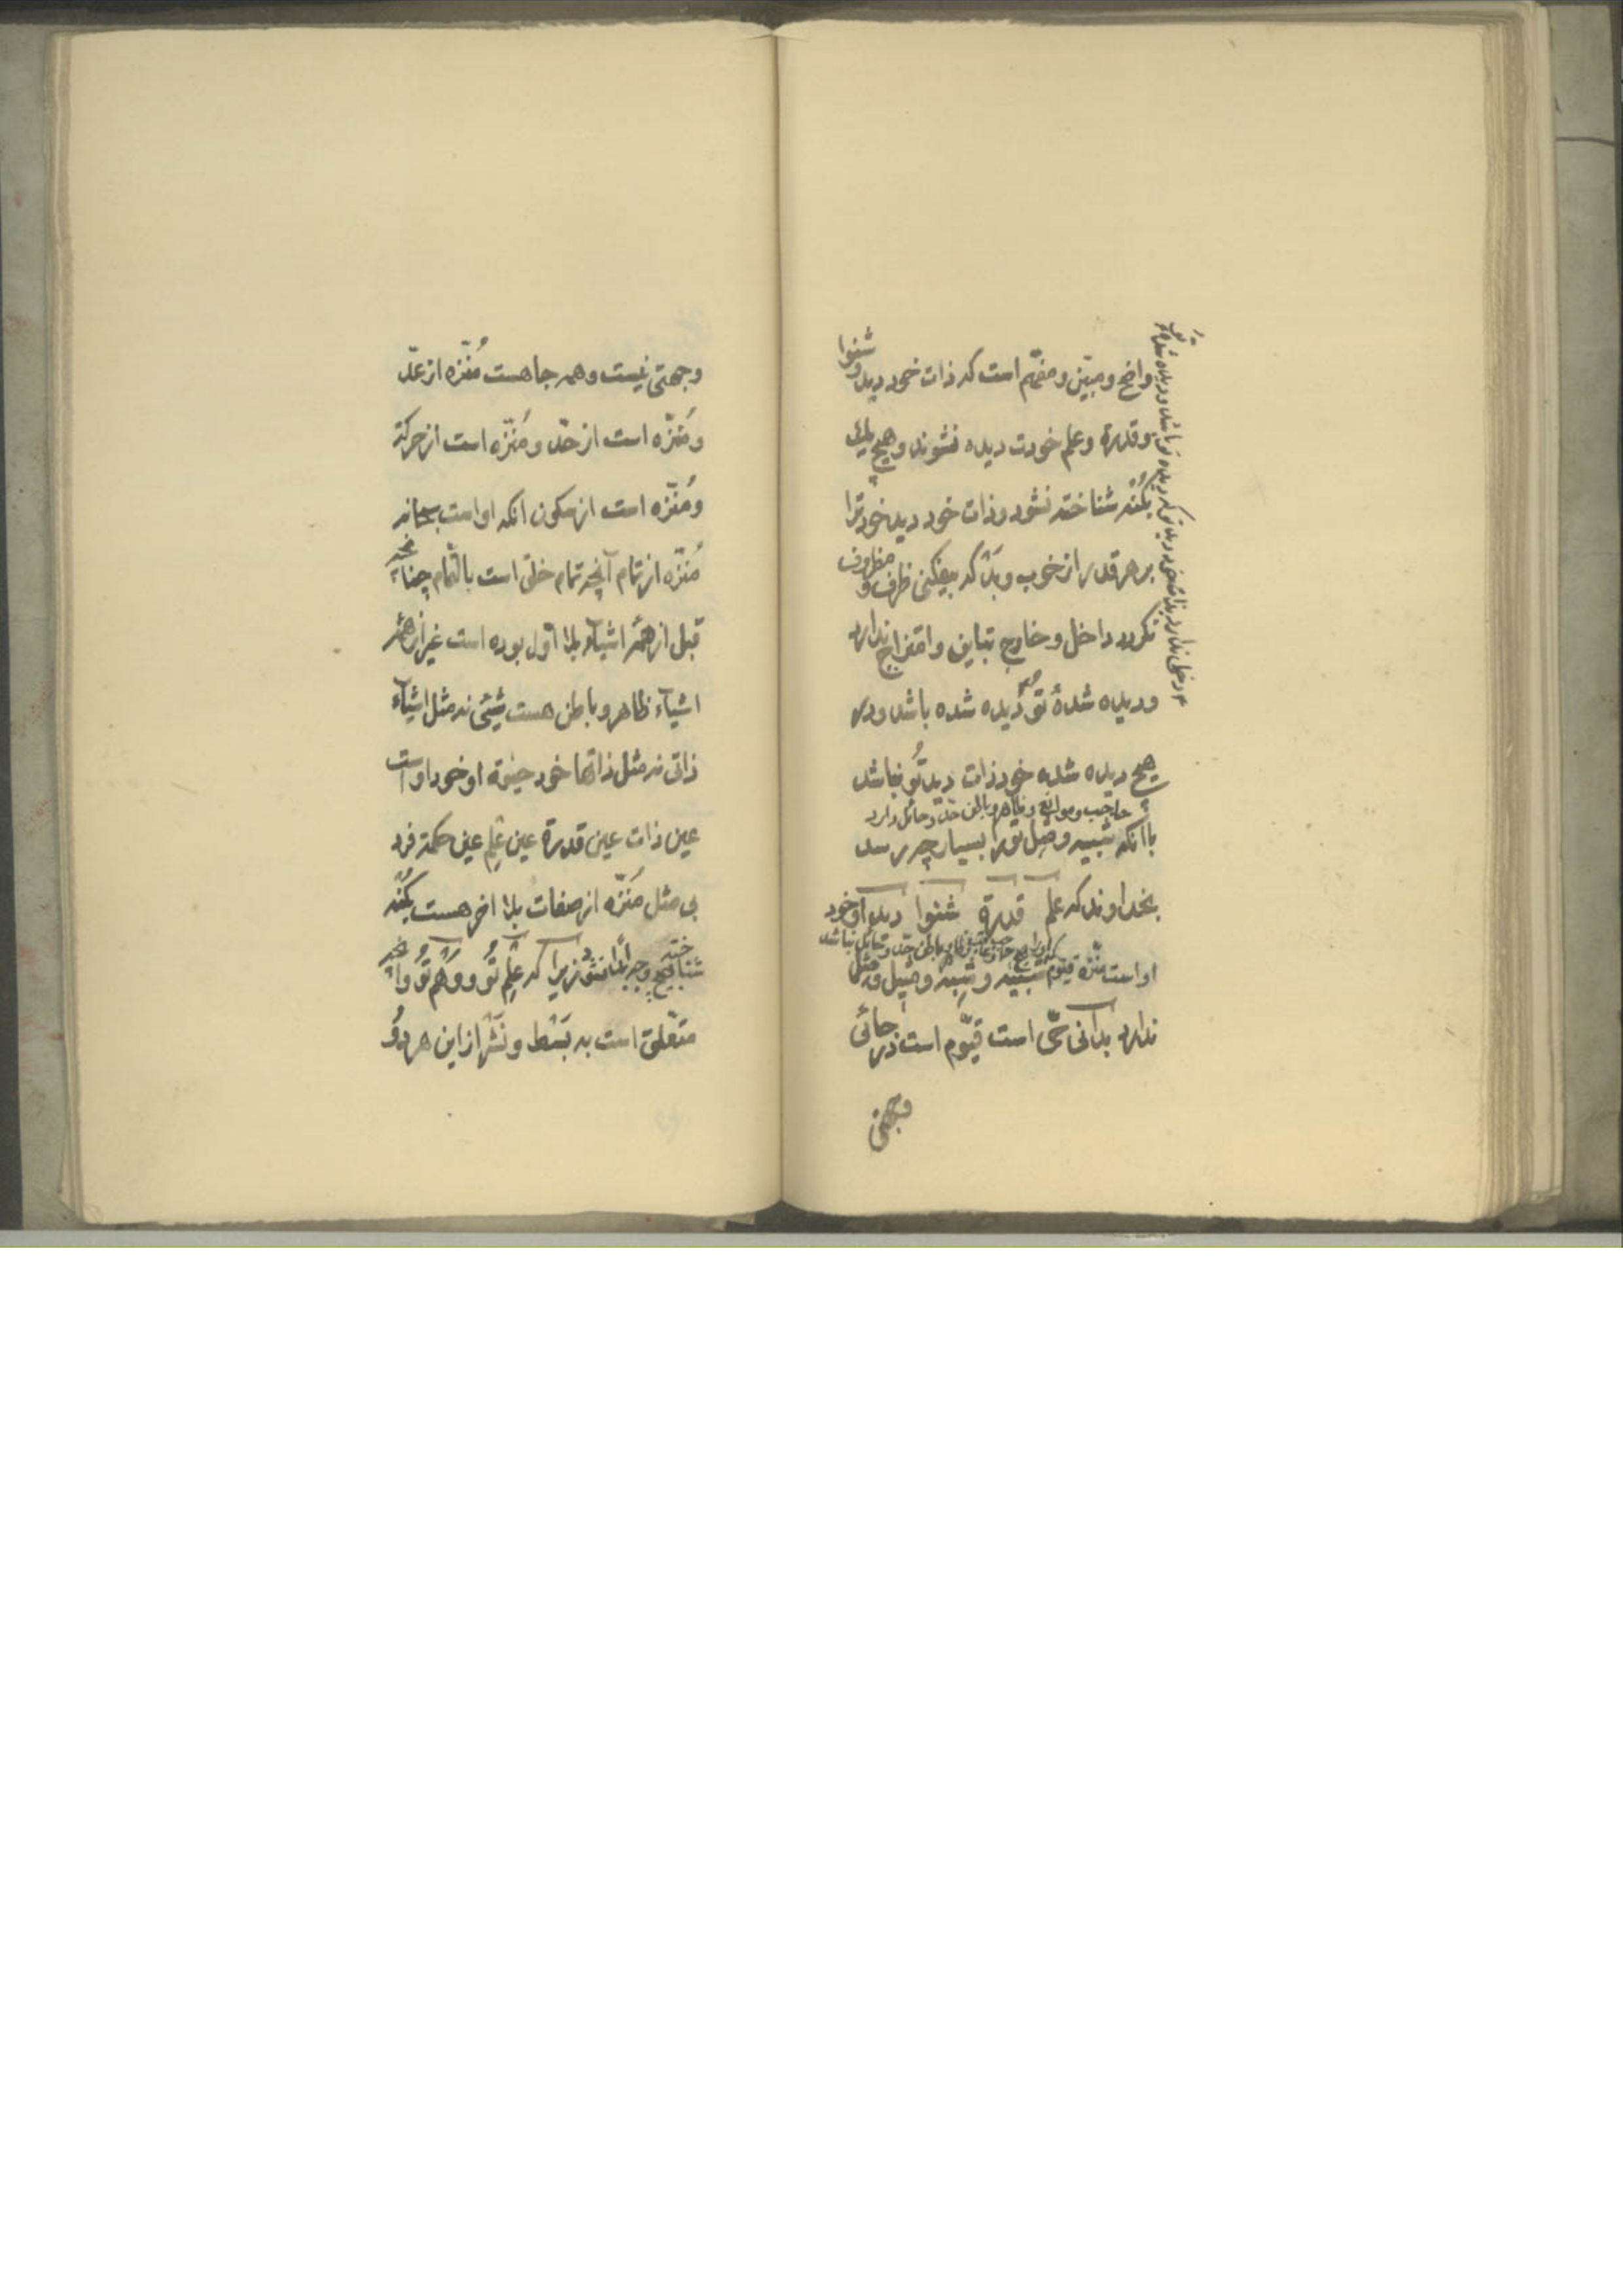 واضح و مبیّن و مفهّم است که ذات خود دید و شنوا
و قدرة و علم خودت دیده نشوند و هیچ یك
بکُنْه شناخته نشود و ذات خود دید خود ترا
بر هر قدر از خوب و بد که بیفکنی ظرف و مظروف
نکردد داخل و خارج تباین و امتزاج ندارد
و دیده شدهٔ تو دیده شده باشد و در
هیچ دیده شده خود ذات دید تُو نباشد
حاجب و موانع و ظاهر و باطن حدّ و حائل دارد
با آنکه شبیه و مثل تو را بسیار چه رسد
بخداوند که علم قدرة شنوا دید او خود
او است منزّه قیّوم شبیه و شِبْه و مثیل و مثل
ندارد بدانی حیّ است قیّوم است در جائی
وجهتی
وجهتی نیست و همه جا هست مُنزّه از عدّ
و مُنزّه است از حدّ و مُنزّه است از حرکة
و مُنزّه است از سکون آنکه او است سبحانه
مُنزّه از تمام آنچه تمام خلق است بالتّمام چنانچه
قبل از همهٔ اشیآء بلا اوّل بوده است غیر از همهٔ
اشیآء ظاهر و باطن هست شیئی نه مثل اشیآء
ذاتی نه مثل ذاتها خود حیوة او خود او است
عین ذات عین قدرة عین عِلم عین حکمة فرد
بی مثل مُنزّه از صفات بلا اخر هست بکُنْه
شناخته بهیچ وجه ابدًا نشود زیرا که عِلْم تُو و وَهْم تُو و آنچه
متعّلق است به بَسْط و نَشْر از این هر دُو